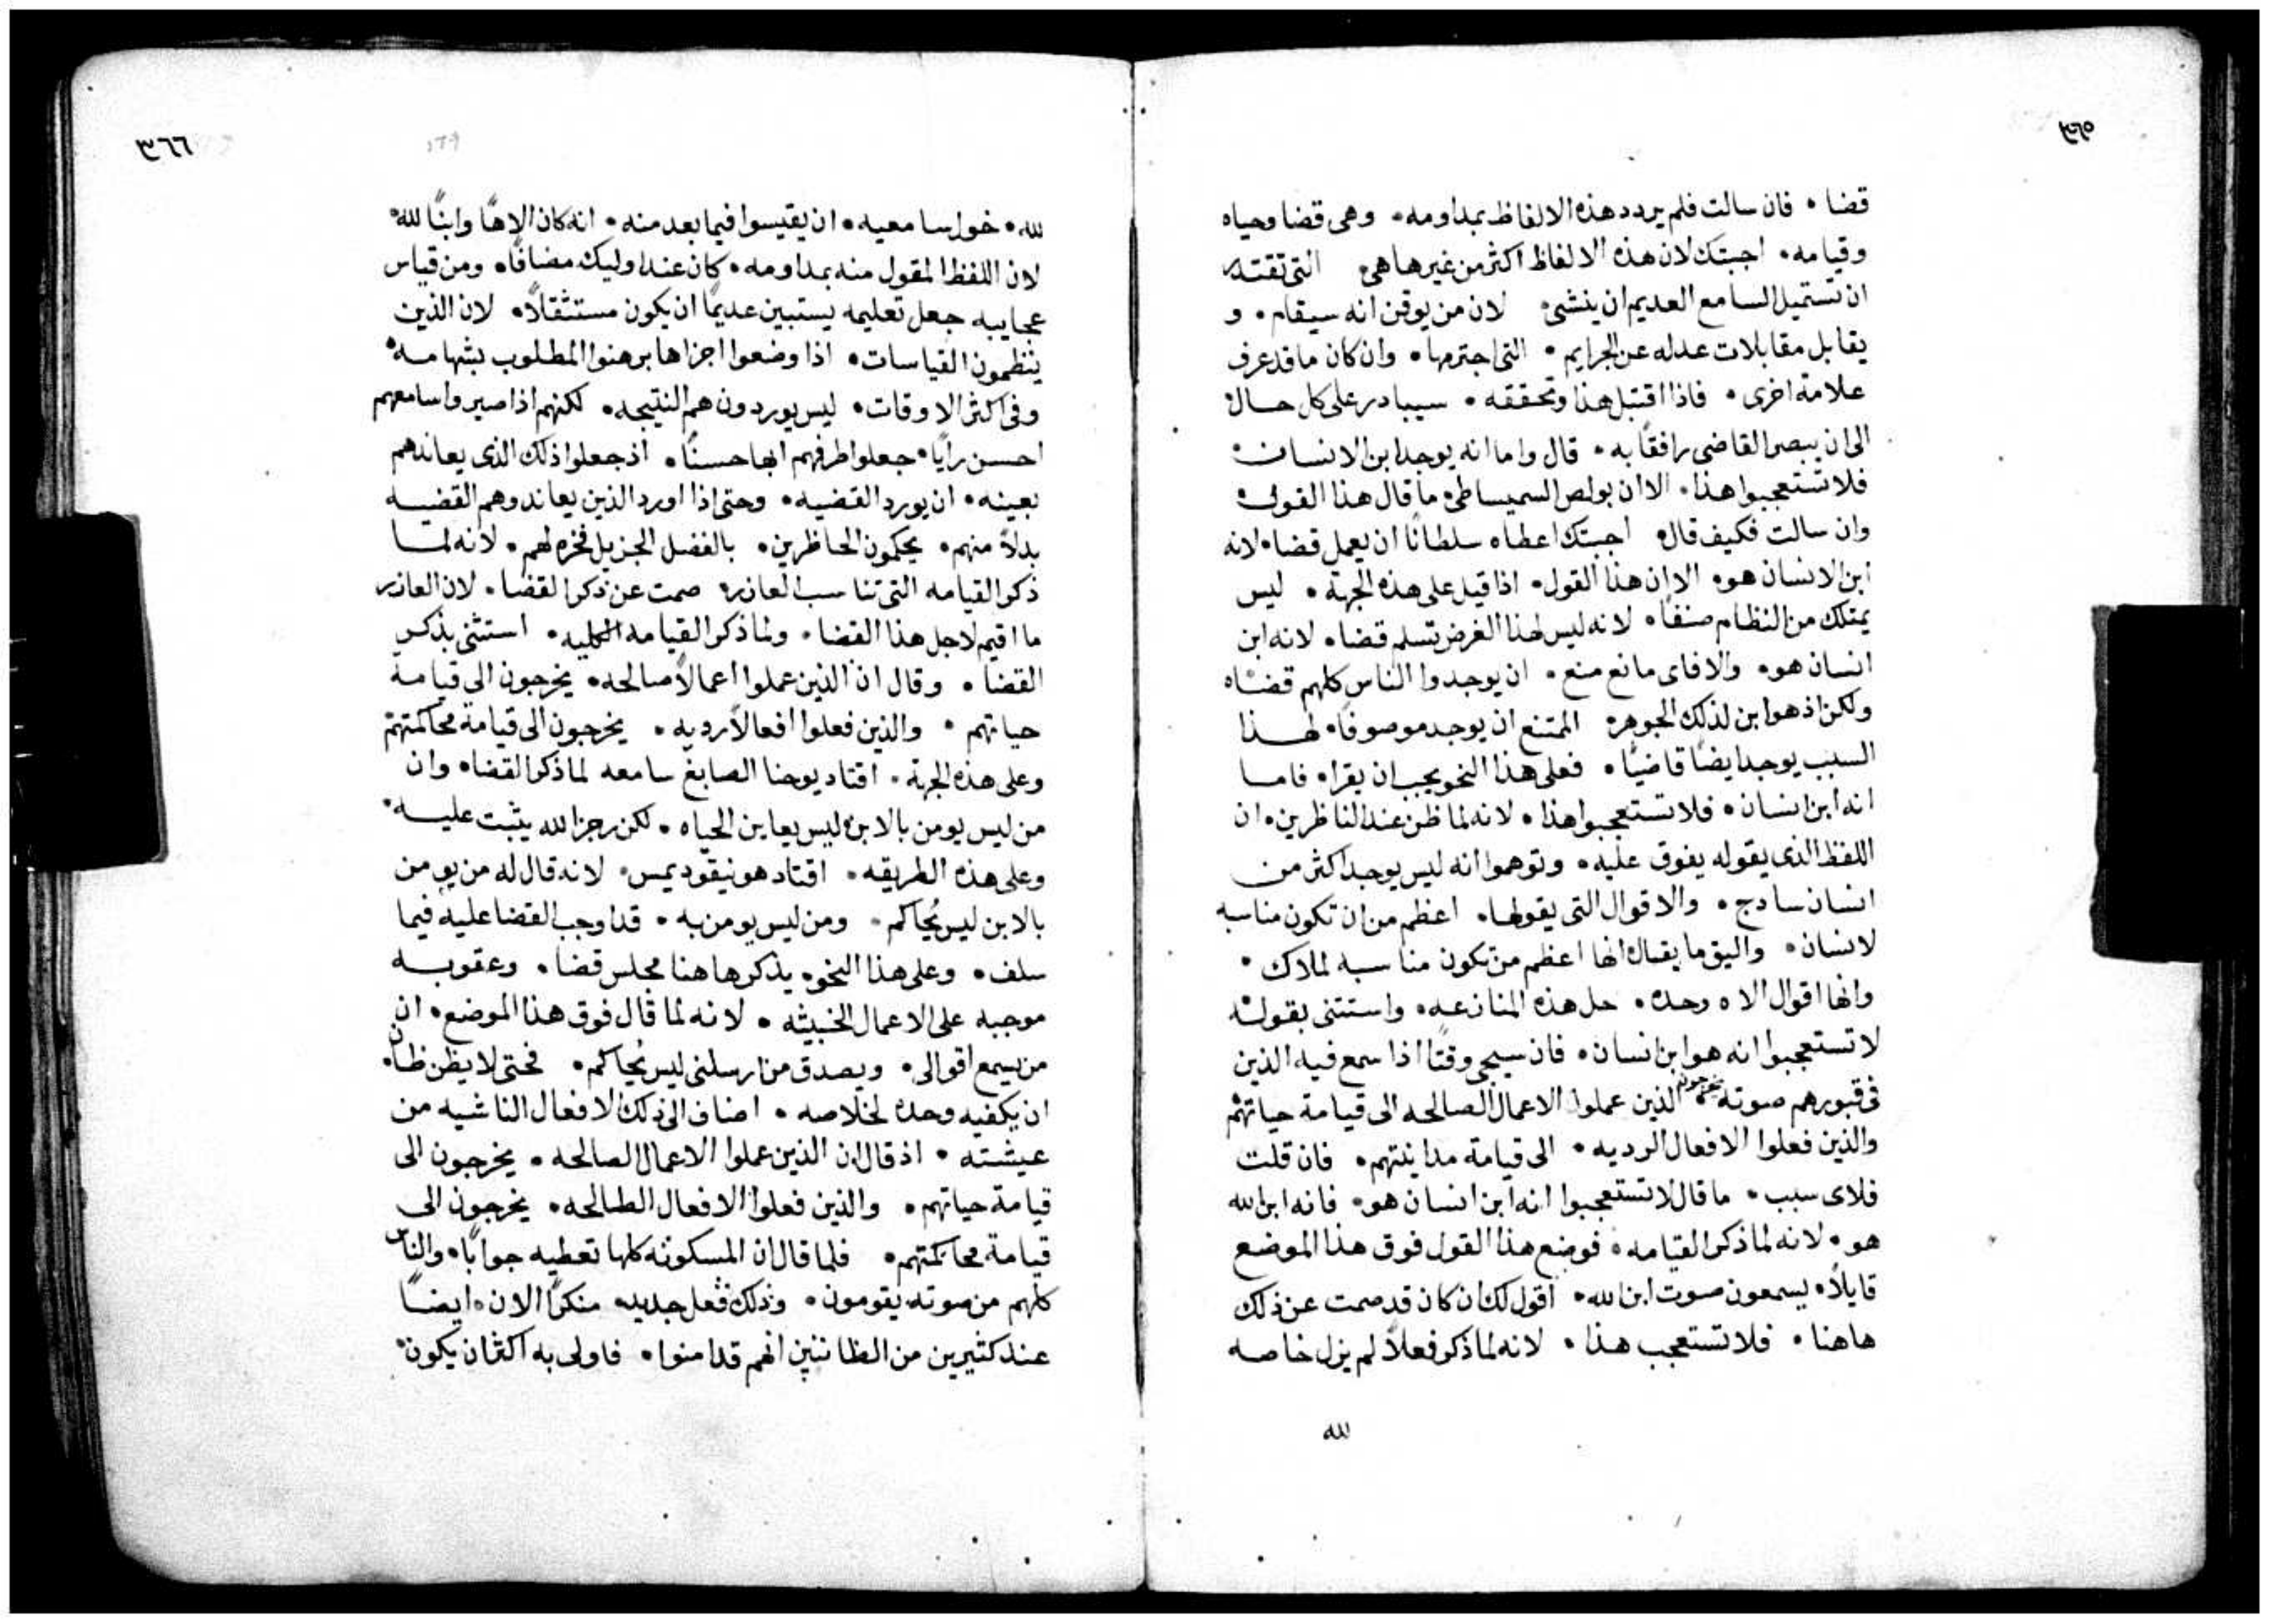 ٣٦٥
قضا • فان سالت فلم يردد هذه الالفاظ بمداومه • وهى قضا وحياه
وقيامه • اجبتك لان هذه الالفاظ اكثر من غيرها هى التى تقتدر
ان تستميل السامع العديم ان ينثنى لان من يوقن انه سيقام • و
يقابل مقابلات عدله عن الجرايم • التى اجترمها • وان كان ما قد عرف
علامة اخرى • فاذا اقتبل هذا وتحققه • سيبادر على كل حال
الى ان يبصر القاضى رافقًا به • قال واما انه يوجد ابن الانسان •
فلا تستعجبوا هذا • الا ان بولص السميساطى ما قال هذا القول
وان سالت فكيف قال اجبتك اعطاه سلطانًا ان يعمل قضا • لانه
ابن الانسان هو • الا ان هذا القول • اذا قيل على هذه الجهة • ليس
يمتلك من النظام صنفًا • لانه ليس لهذا الغرض تسلم قضا • لانه ابن
انسان هو • والا فاى مانع منع • ان يوجدوا الناس كلهم قضاه
ولكن اذ هو ابن لذلك الجوهر الممتنع ان يوجد موصوفًا • لهذا
السبب يوجد ايضًا قاضيًا • فعلى هذا النحو يجب ان يقرا • فاما
انه ابن انسان • فلا تستعجبوا هذا • لانه لما ظن عند الناظرين • ان
اللفظ الذى يقوله يفوق عليه • وتوهموا انه ليس يوجد اكثر من
انسان سادج • والاقوال التى يقولها • اعظم من ان تكون مناسبه
لانسان • واليق ما يقال انها اعظم من تكون مناسبه لملاك •
وانها اقوال الاه وحده • حل هذه المنازعه • واستثنى بقوله
لا تستعجبوا انه هو ابن انسان • فان سيجى وقتًا اذا سمع فيه الذين
فى قبورهم صوته يخرجون الذين عملوا الاعمال الصالحه الى قيامة حياتهم
والذين فعلوا الافعال الرديه • الى قيامة مداينتهم • فان قلت
فلاى سبب • ما قال لا تستعجبوا انه ابن انسان هو • فانه ابن الله
هو • لانه لما ذكر القيامه • فوضع هذا القول فوق هذا الموضع
قايلاً • يسمعون صوت ابن الله • اقول لك ان كان قد صمت عن ذلك
هاهنا • فلا تستعجب هذا • لانه لما ذكر فعلاً لم يزل خاصه
لله
٣٦٦
لله • خول سامعيه • ان يقيسوا فيما بعد منه • انه كان الاهًا وابنًا لله
لان اللفظ المقول منه بمداومه • كان عند اوليك مضافًا • ومن قياس
عجايبه جعل تعليمه يستبين عديمًا ان يكون مستثقلاً • لان الذين
ينظمون القياسات • اذا وضعوا اجزاها برهنوا المطلوب بشهامه
وفى اكثر الاوقات • ليس يوردون هم النتيجه • لكنهم اذا صيروا سامعهم
احسن رايًا • جعلوا طرفهم ابها حسنًا • اذ جعلوا ذلك الذى يعاندهم
بعينه • ان يورد القضيه • وحتى اذا اورد الذين يعاندوهم القضيه
بدلاً منهم • يحكمون الحاظرين • بالفضل الجزيل فخره لهم • لانه لما
ذكر القيامه التى تناسب لعازر صمت عن ذكر القضا • لان العازر
ما اقيم لاجل هذا القضا • ولما ذكر القيامه الكليه • استثنى بذكر
القضا • وقال ان الذين عملوا اعمالاً صالحه • يخرجون الى قيامة
حياتهم • والذين فعلوا افعالاً رديه • يخرجون الى قيامة محاكمتهم
وعلى هذه الجهة • اقتاد يوحنا الصابغ سامعه لما ذكر القضا • وان
من ليس يومن بالابن ليس يعاين الحياه • لكن رجز الله يثبت عليه •
وعلى هذه الطريقه • اقتاد هو نيقوديمس • لانه قال له من يومن
بالابن ليس يُحاكم • ومن ليس يومن به • قد اوجب القضا عليه فيما
سلف • وعلى هذا النحو • يذكرها هنا مجلس قضا • وعقوبه
موجبه على الاعمال الخبيثه • لانه لما قال فوق هذا الموضع • ان
من يسمع اقوالى • ويصدق من ارسلنى ليس يُحاكم • فحتى لا يظن ظان
ان يكفيه وحده لخلاصه • اضاف الى ذلك الافعال الناشيه من
عيشته • اذ قال ان الذين عملوا الاعمال الصالحه • يخرجون الى
قيامة حياتهم • والذين فعلوا الافعال الطالحه • يخرجون الى
قيامة محاكمتهم • فلما قال ان المسكونه كلها تعطيه جوابًا • والناس
كلهم من صوته يقومون • وذلك فعل جديد منكرًا الان • ايضًا
عند كثيرين من الظانين انهم قد امنوا • فاولى به اكثر ان يكون